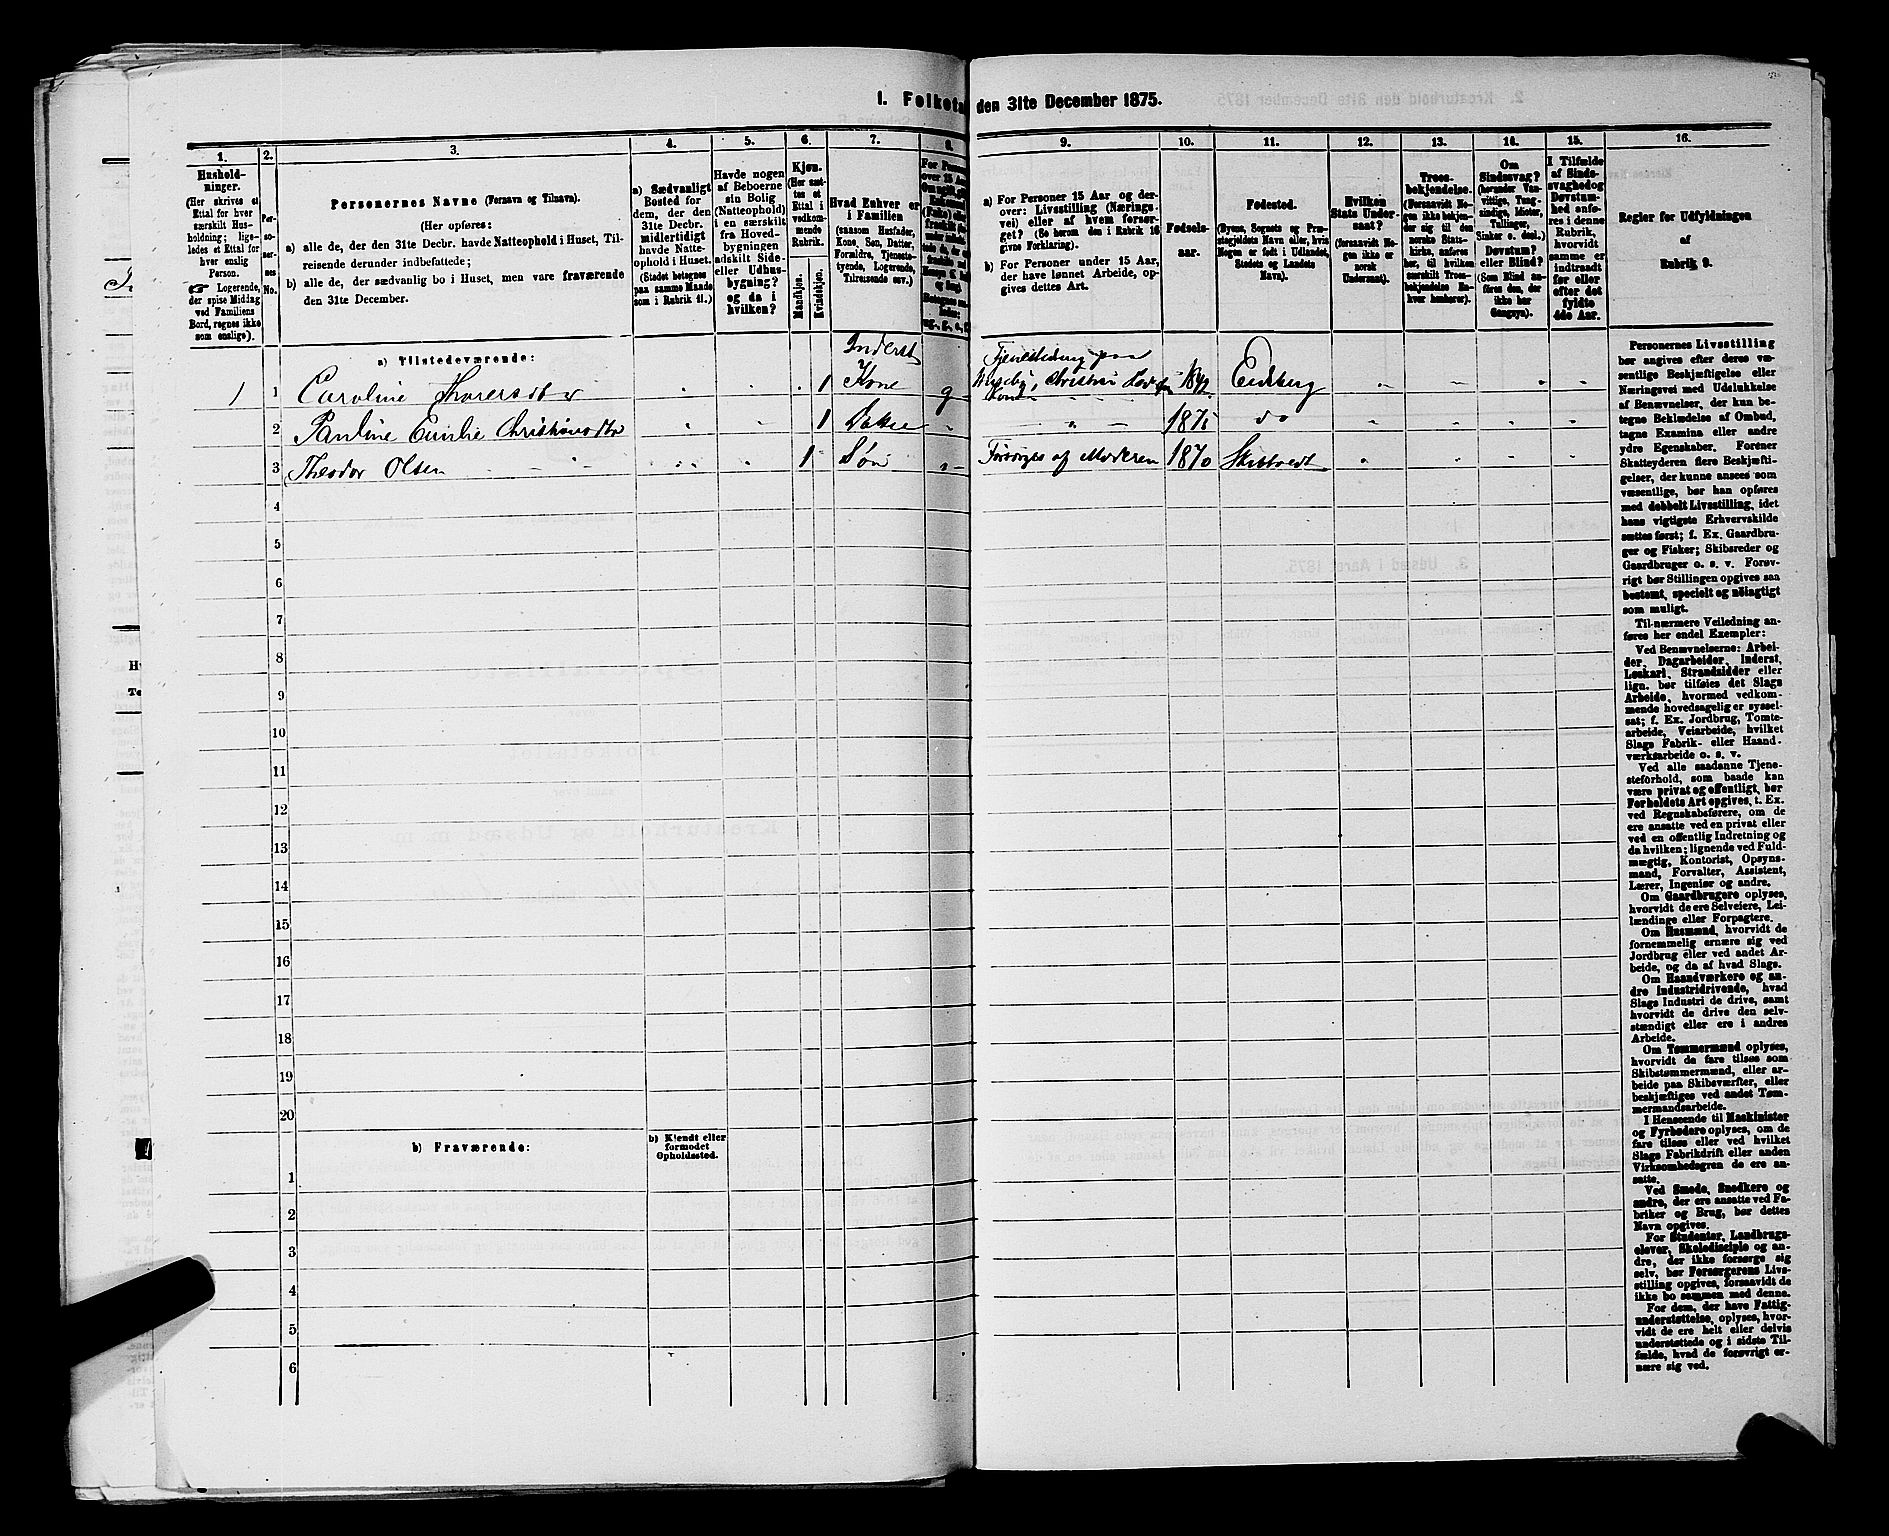 1. Folketæ
den 31te December 1875.
1.
2.
3.
4.
5.
6.
7.
8.
9.
10.
11.
12.
13.
14.
15.
16.
Hushold-
ninger.
(Her skrives et
Ettal for hver
særskilt Hus-
holdning; lige-
ledes et Ettal for
hver enslig
Person.
☞ Logerende,
der spise Middag
ved Familiens
Bord, regnes ikke
som enslige).
Per-
so-
ner-
nes
No.
Personernes Navne (Fornavn og Tilnavn).
(Her opføres:
a) alle de, der den 31te Decbr. havde Natteophold i Huset, Til-
reisende derunder indbefattede;
b) alle de, der sædvanlig bo i Huset, men vare fraværende
den 31te December.
a) Sædvanligt
Bosted for
dem, der den
31te Decbr.
midlertidigt
havde Natte-
ophold i Huset.
(Stedet betegnes
paa samme Maade
som i Rubrik 11.)
Havde nogen
af Beboerne
sin Bolig
(Natteophold)
i en særskilt
fra Hoved-
bygningen
adskilt Side-
eller Udhus-
bygning?
og da i
hvilken?
Kjøn.
(Her sæt-
tes et
Ettal i
vedkom-
mende
Rubrik.
Mandkjøn.
Kvindekjøn.
Hvad Enhver er
i Familien
(saasom Husfader,
Kone, Søn, Datter,
Forældre, Tjeneste-
tyende, Logerende,
Tilreisende osv.)
a) For Personer 15 Aar og der-
over: Livsstilling (Nærings-
vei) eller af hvem forsør-
get? (Se herom den i Rubrik 16
givne Forklaring).
b) For Personer under 15 Aar,
der have lønnet Arbeide, op-
gives dettes Art.
Fødsels-
aar.
Fødested.
(Byens, Sognets og Præ-
stegjeldets Navn eller, hvis
Nogen er født i Udlandet,
Stedets og Landets
Navn.)
Hvilken
Stats Under-
saat?
(forsaavidt No-
gen ikke er
norsk
Undersaat).
Troes-
bekjendelse.
(Forsaavidt No-
gen ikke bekjen-
der sig til den
norske Stats-
kirke, anføres
her, til hvilken
særskilt Troes-
bekjendelse En-
hver henhører).
Om
Sindssvag?
(herunder Van-
vittige, Tung-
sindige, Idioter,
Tullinger,
Sinker o. desl.)
Døvstum?
eller Blind?
(Som Blind an-
føres den, der
ikke har
Gangsyn).
I Tilfælde
af Sinds-
svaghed og
Døvstum-
hed anfø-
res i denne
Rubrik,
hvorvidt
samme er
indtraadt
før eller
efter det
fyldte
4de Aar.
Regler for Udfyldningen
af
Rubrik 9.
a) Tilstedeværende:
1 1 Caroline Thoresdtr 1 Inderst Kone g Tjenesteding paa 1842 Eidsberg
2 Pauline Emilie Christiansdtr 1 Datter 1875 do
3 Theodor Olsen 1 Søn Forsørges af Moderen 1870 Skibtvedt
4
5
6
7
8
9
10
11
12
13
14
15
16
17
18
19
20
b) Fraværende:
b) Kjendt eller
formodet
Opholdssted.
1
2
3
4
5
6
Personernes Livsstilling
bør angives efter deres væ-
sentlige Beskjæftigelse eller
Næringsvei med Udelukkelse
af Benævnelser, der kun be-
tegne Beklædelse af Ombud,
tagne Examina eller andre
ydre Egenskaber. Forener
Skatteyderen flere Beskjæfti-
gelser, der kunne ansees som
væsentlige, bør han opføres
med dobbelt Livsstilling, idet
hans vigtigste Erhvervskilde
sættes først; f. Ex. Gaardbru-
ger og Fisker; Skibsreder og
Gaardbruger o. s. v. Forøv-
rigt bør Stillingen opgives saa
bestemt, specielt og nøiagtigt
som muligt.
Til nærmere Veiledning an-
føres her endel Exempler:
Ved Benævnelserne: Arbei-
der, Dagarbeider, Inderst,
Løskarl, Strandsidder eller
lign. bør tilføies det Slags
Arbeide, hvormed vedkom-
mende hovedsagelig er syssel-
sat; f. Ex. Jordbrug, Tomte-
arbeide, Veiarbeide, hvilket
Slags Fabrik- eller Haand-
værksarbeide o. s. v.
Ved alle saadanne Tjene-
steforhold, som baade kan
være privat og offentligt, bør
Forholdets Art opgives, t. Ex.
ved Regnskabsførere, om de
ere ansatte ved en privat eller
ved en offentlig Indretning og
da hvilken; lignende ved Fuld-
mægtig, Kontorist, Opsyns-
mand, Forvalter, Assistent,
Lærer, Ingeniør og andre.
Om Gaardbrugere oplyses,
hvorvidt de ere Selveiere, Lei-
lændinge eller Forpagtere.
Om Husmænd, hvorvidt de
fornemmelig ernære sig ved
Jordbrug eller ved andet Ar-
beide, og da af hvad Slags.
Om Haandværkere og an-
dre Industridrivende, hvad
Slags Industri de drive, samt
hvorvidt de drive den selv-
stændigt eller ere i andres
Arbeide.
Om Tømmermænd oplyses,
hvorvidt de fare tilsøs som
Skibstømmermænd, eller ar-
beide paa Skibsværfter, eller
beskjæftiges ved andet Tøm-
mermandsarbeide.
I Henseende til Maskinister
og Fyrbødere oplyses, om de
fare tilsøs eller ved hvilket
Slags Fabrikdrift eller anden
Virksomhedsgren de ere an-
satte.
Ved Smede, Snedkere og
andre, der ere ansatte ved Fa-
briker og Brug, bør dettes
Navn opgives.
For Studenter, Landbrugs-
elever, Skoledisciple og an-
dre, der ikke forsørge sig
selv, bør Forsørgerens Livs-
stilling opgives, forsaavidt de
ikke bo sammen med denne.
For dem, der have Fattig-
understøttelse, oplyses, hvor-
vidt de ere helt eller delvis
understøttede og i sidste Til-
fælde, hvad de forøvrigt er-
nære sig ved.